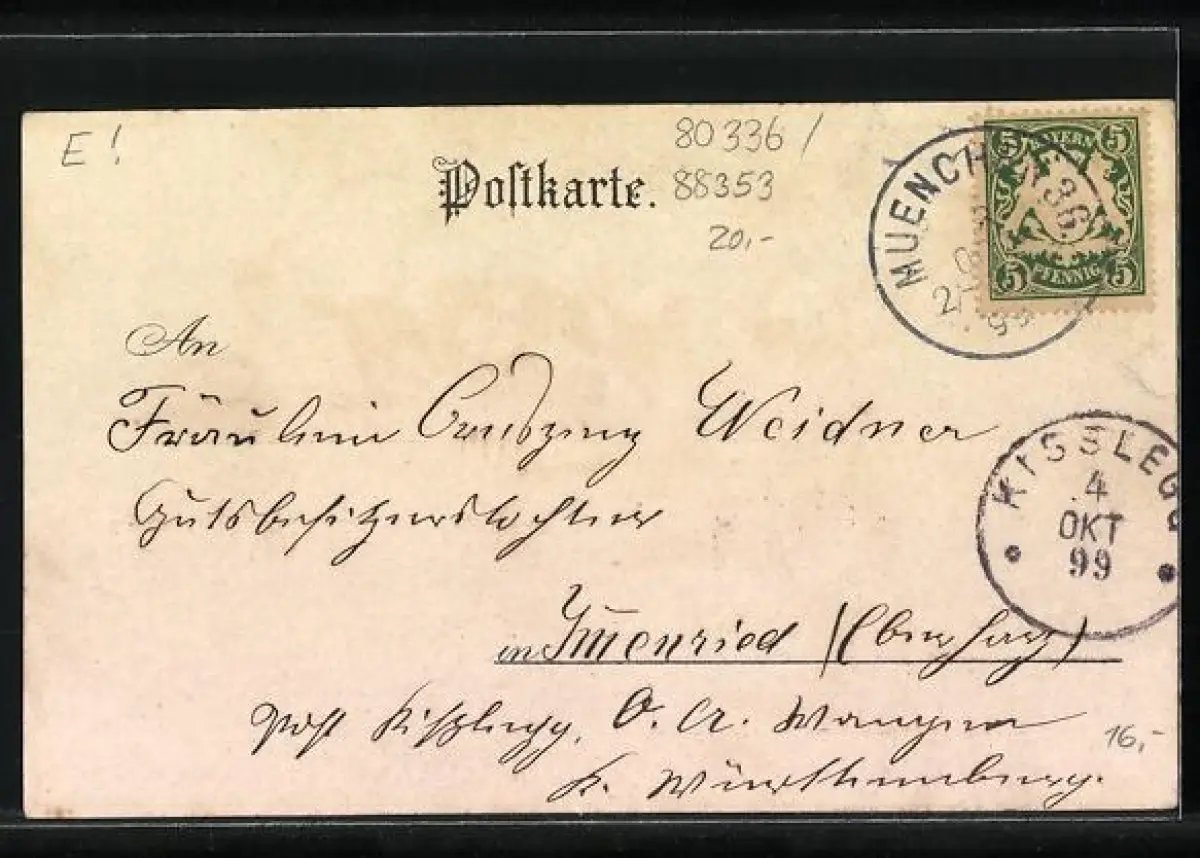 E!
80336/
Postkarte. 88353
20,-
MUENCHEN 36.
2 99
5 BAYERN 5
5 PFENNIG 5
An
Fräulein Weidner
Gutsbesitzerstochter
KISSLEGG
4
OKT
99
in Immenried
Post Kißlegg, O. A. Wangen
16,-
K. Württemberg.